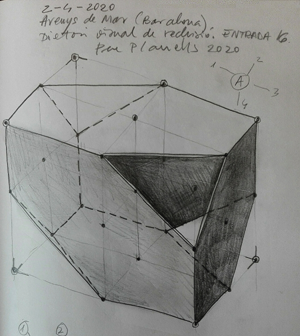 2-4-2020
Arenys de Mar (Barcelona)
Diettari visual de reclusió. ENTRADA 16.
Pere Planells 2020
1 2
A
3
4
1 2